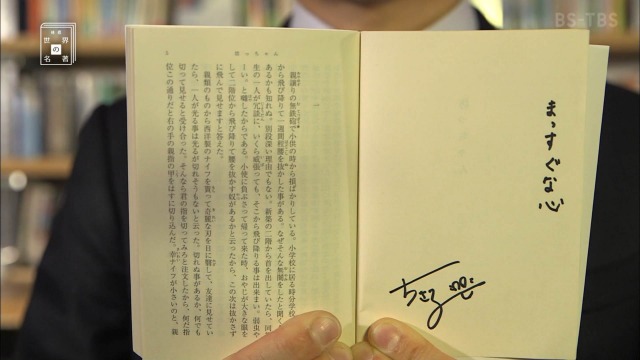 BS-TBS
林修
世界の名著
3 坊っちゃん
一
親譲りの無鉄砲で小供の時から損ばかりしている。小学校に居る時分学校の二階
から飛び降りて一週間程腰を抜かした事がある。なぜそんな無闇をしたと聞く人が
あるかも知れぬ。別段深い理由でもない。新築の二階から首を出していたら、同級
生の一人が冗談に、いくら威張っても、そこから飛び降りる事は出来まい。弱虫や
ーい。と囃したからである。小使に負ぶさって帰って来た時、おやじが大きな眼を
して二階位から飛び降りて腰を抜かす奴があるかと云ったから、この次は抜かさず
に飛んで見せますと答えた。
親類のものから西洋製のナイフを貰って奇麗な刃を日に翳して、友達に見せてい
たら、一人が光る事は光るが切れそうもないと云った。切れぬ事があるか、何でも
切って見せると受け合った。そんなら君の指を切ってみろと注文したから、何だ指
位この通りだと右の手の親指の甲をはすに切り込んだ。幸ナイフが小さいのと、親
まっすぐな心